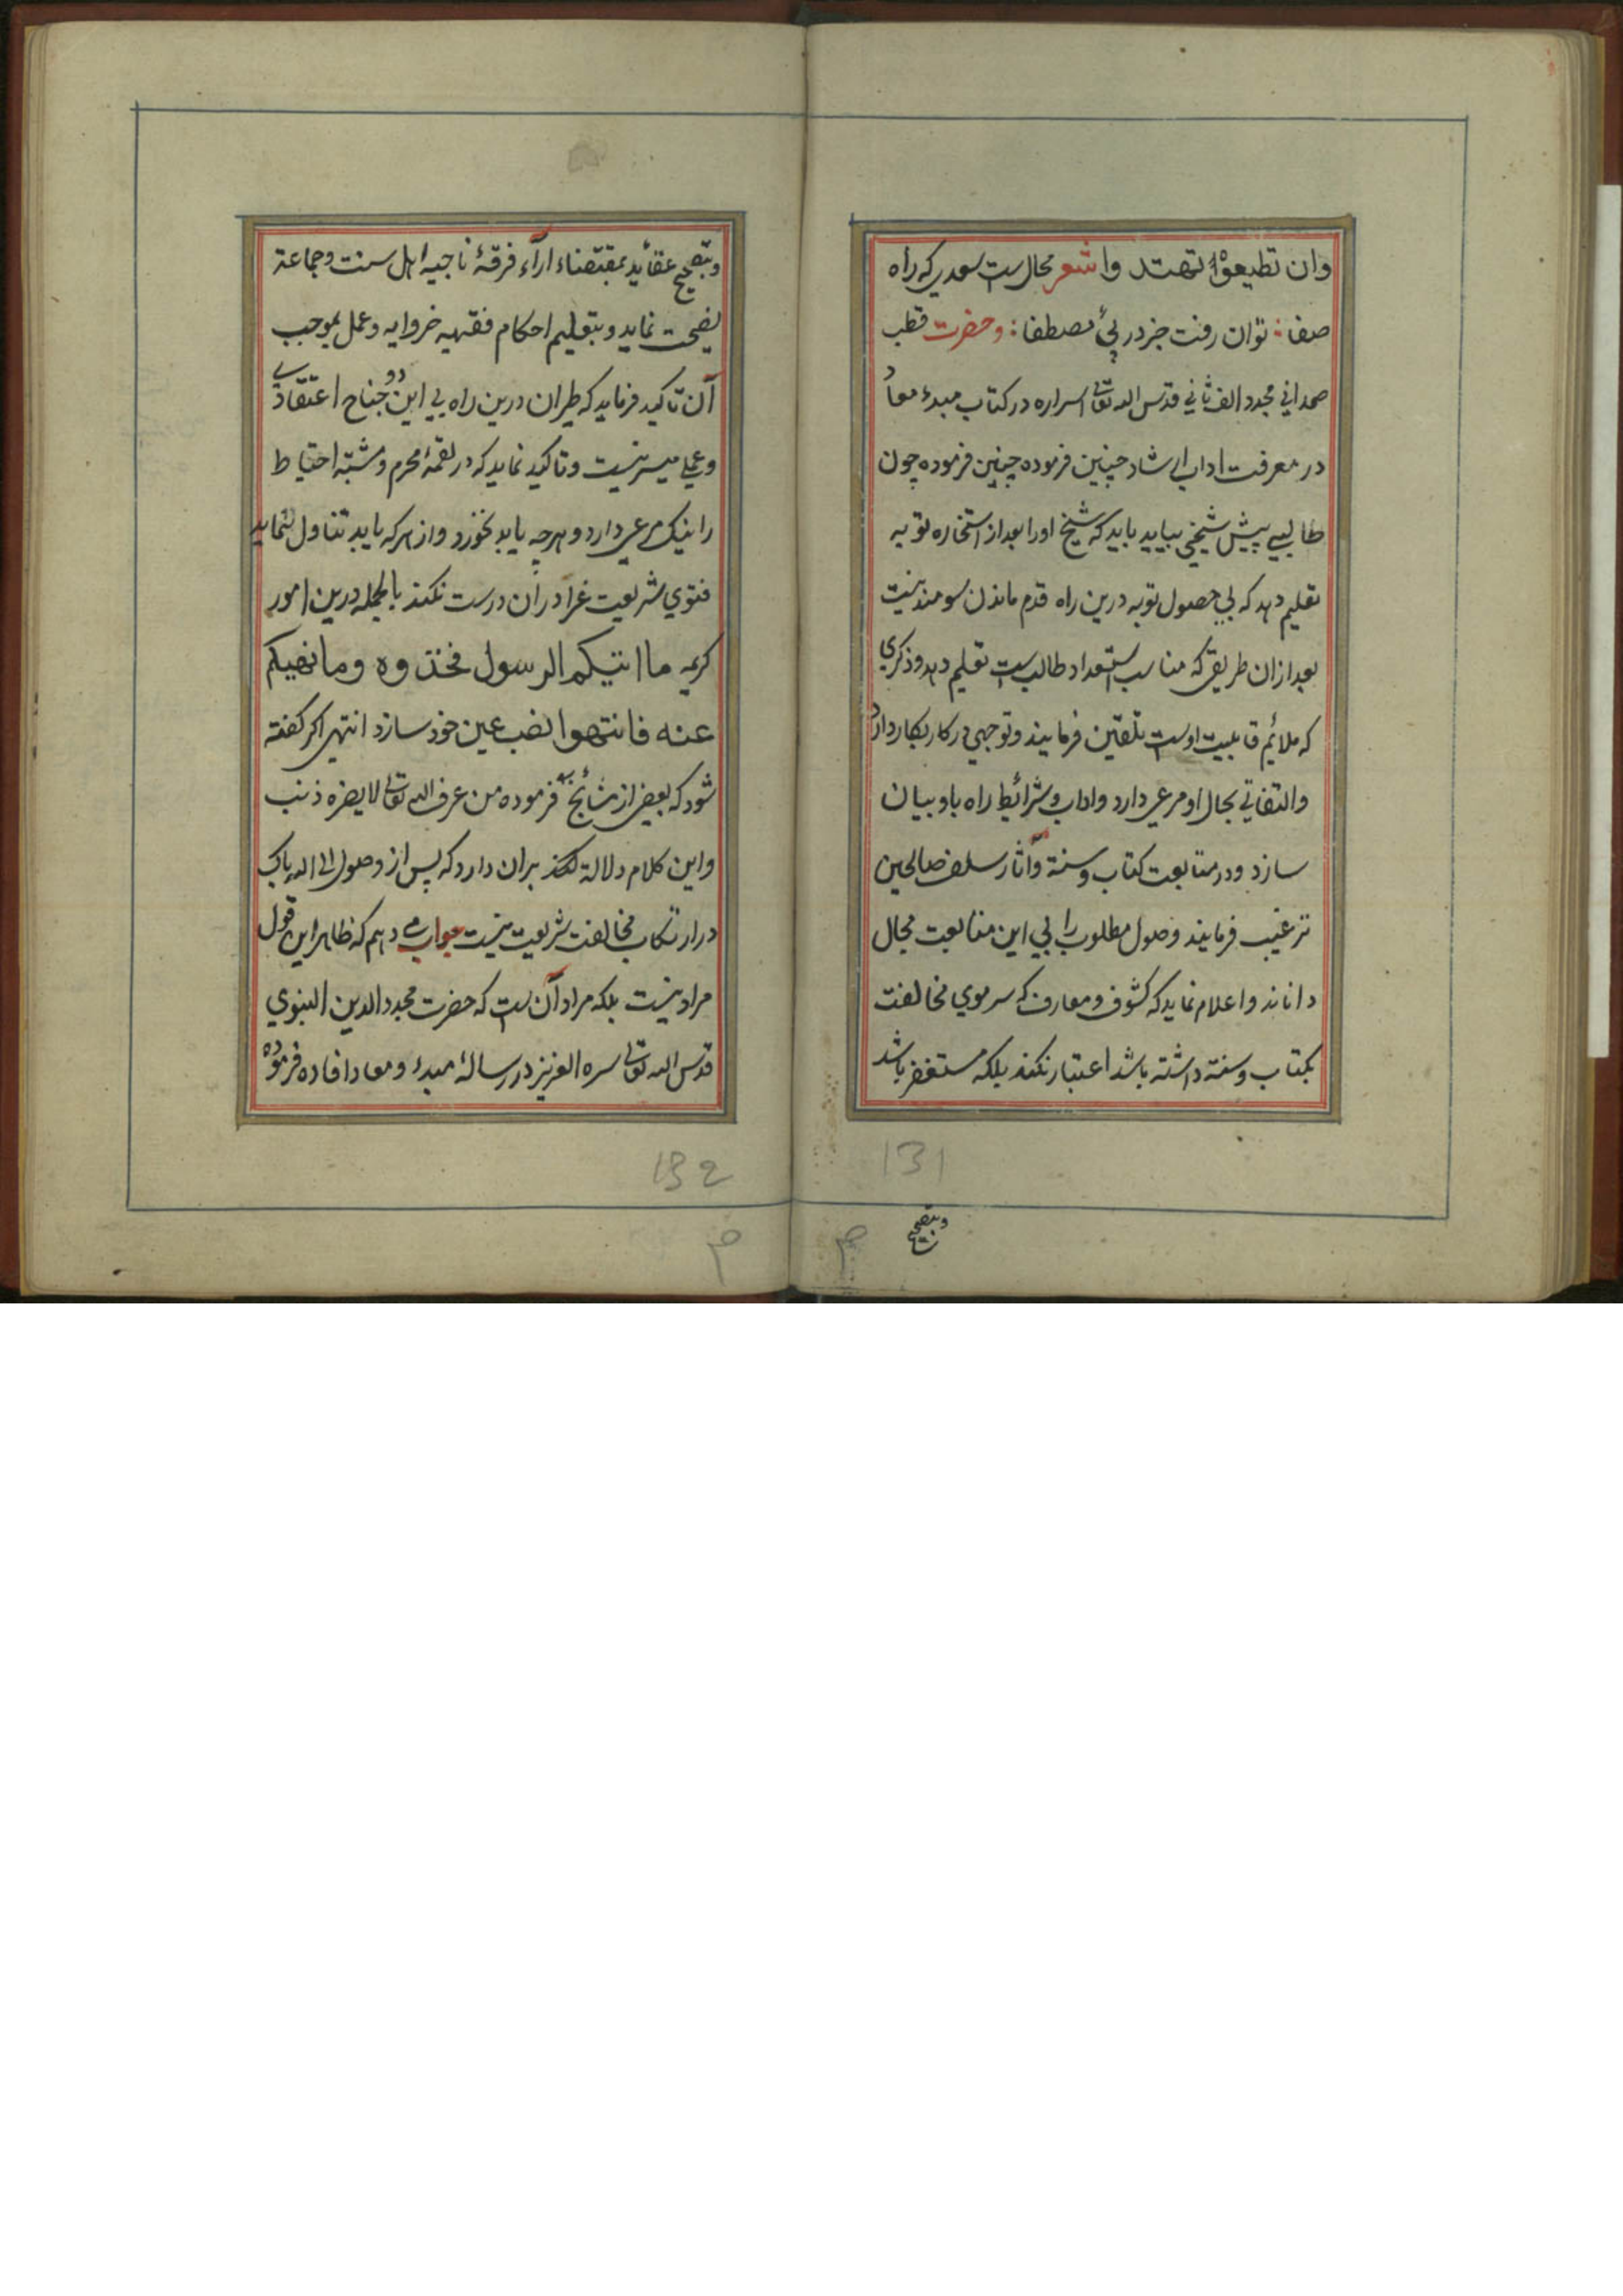 وان تطیعوه تهتدوا شعر محال است سعدی که راه
صفا : توان رفت جز در پئ مصطفا : وحضرت قطب
صمدانی مجدد الف ثانی قدس الله تعالی اسراره در کتاب مبدء معاد
در معرفت اداب ارشاد چنین فرموده چنین فرموده چون
طالبی پیش شیخی بیاید باید که شیخ اورا بعد از استخاره توبه
تعلیم دهد که بی حصول توبه درین راه قدم ماندن سومند نیست
بعد ازان طریقی که مناسب استعداد طالب است تعلیم دهد وذکری
که ملائم قابلیت اوست تلقین فرمایند وتوجهی در کار بکار دارد
والتفاتی بحال او مرعی دارد واداب وشرائط راه باو بیان
سازد ودر متابعت کتاب وسنة وآثار سلف صالحین
ترغیب فرمایند وصول مطلوب را بی این متابعت محال
دانند واعلام نماید که کشوف ومعارف که سر موی مخالفت
بکتاب وسنة داشته باشد اعتبار نکند بلکه مستغفر باشد
131
وبتصحیح
وبتصحیح عقائد بمقتضاء ارآء فرقۀ ناجیه اهل سنت وجماعة
نصیحت نماید وبتعلیم احکام فقهیه ضروایه وعمل بموجب
آن تاکید فرماید که طیران درین راه بی این دو جناح اعتقادی
وعملی میسر نیست وتاکید نماید که در لقمۀ محرم ومشتبه احتیاط
را نیک مرعی دارد وهر چه یابد نخورد واز هر که یابد تناول ننماید
فتوی شریعت غرا دران درست نکند بالجمله درین امور
کریمه ما اتیکم الرسول فخذوه وما نهیکم
عنه فانتهوا نصب عین خود سازد انتهی اکر کفته
شود که بعضی از مشائخ فرموده من عرف الله تعالی لا یضره ذنب
واین کلام دلالة کند بران دارد که پس از وصول الی الله باک
در ارتکاب مخالفت شریعت نیست جواب می دهم که ظاهر این قول
مراد نیست بلکه مراد آن است که حضرت مجدد الدین النبوی
قدس الله تعالی سره العزیز در رسالۀ مبدء ومعاد افاده فرموده
132